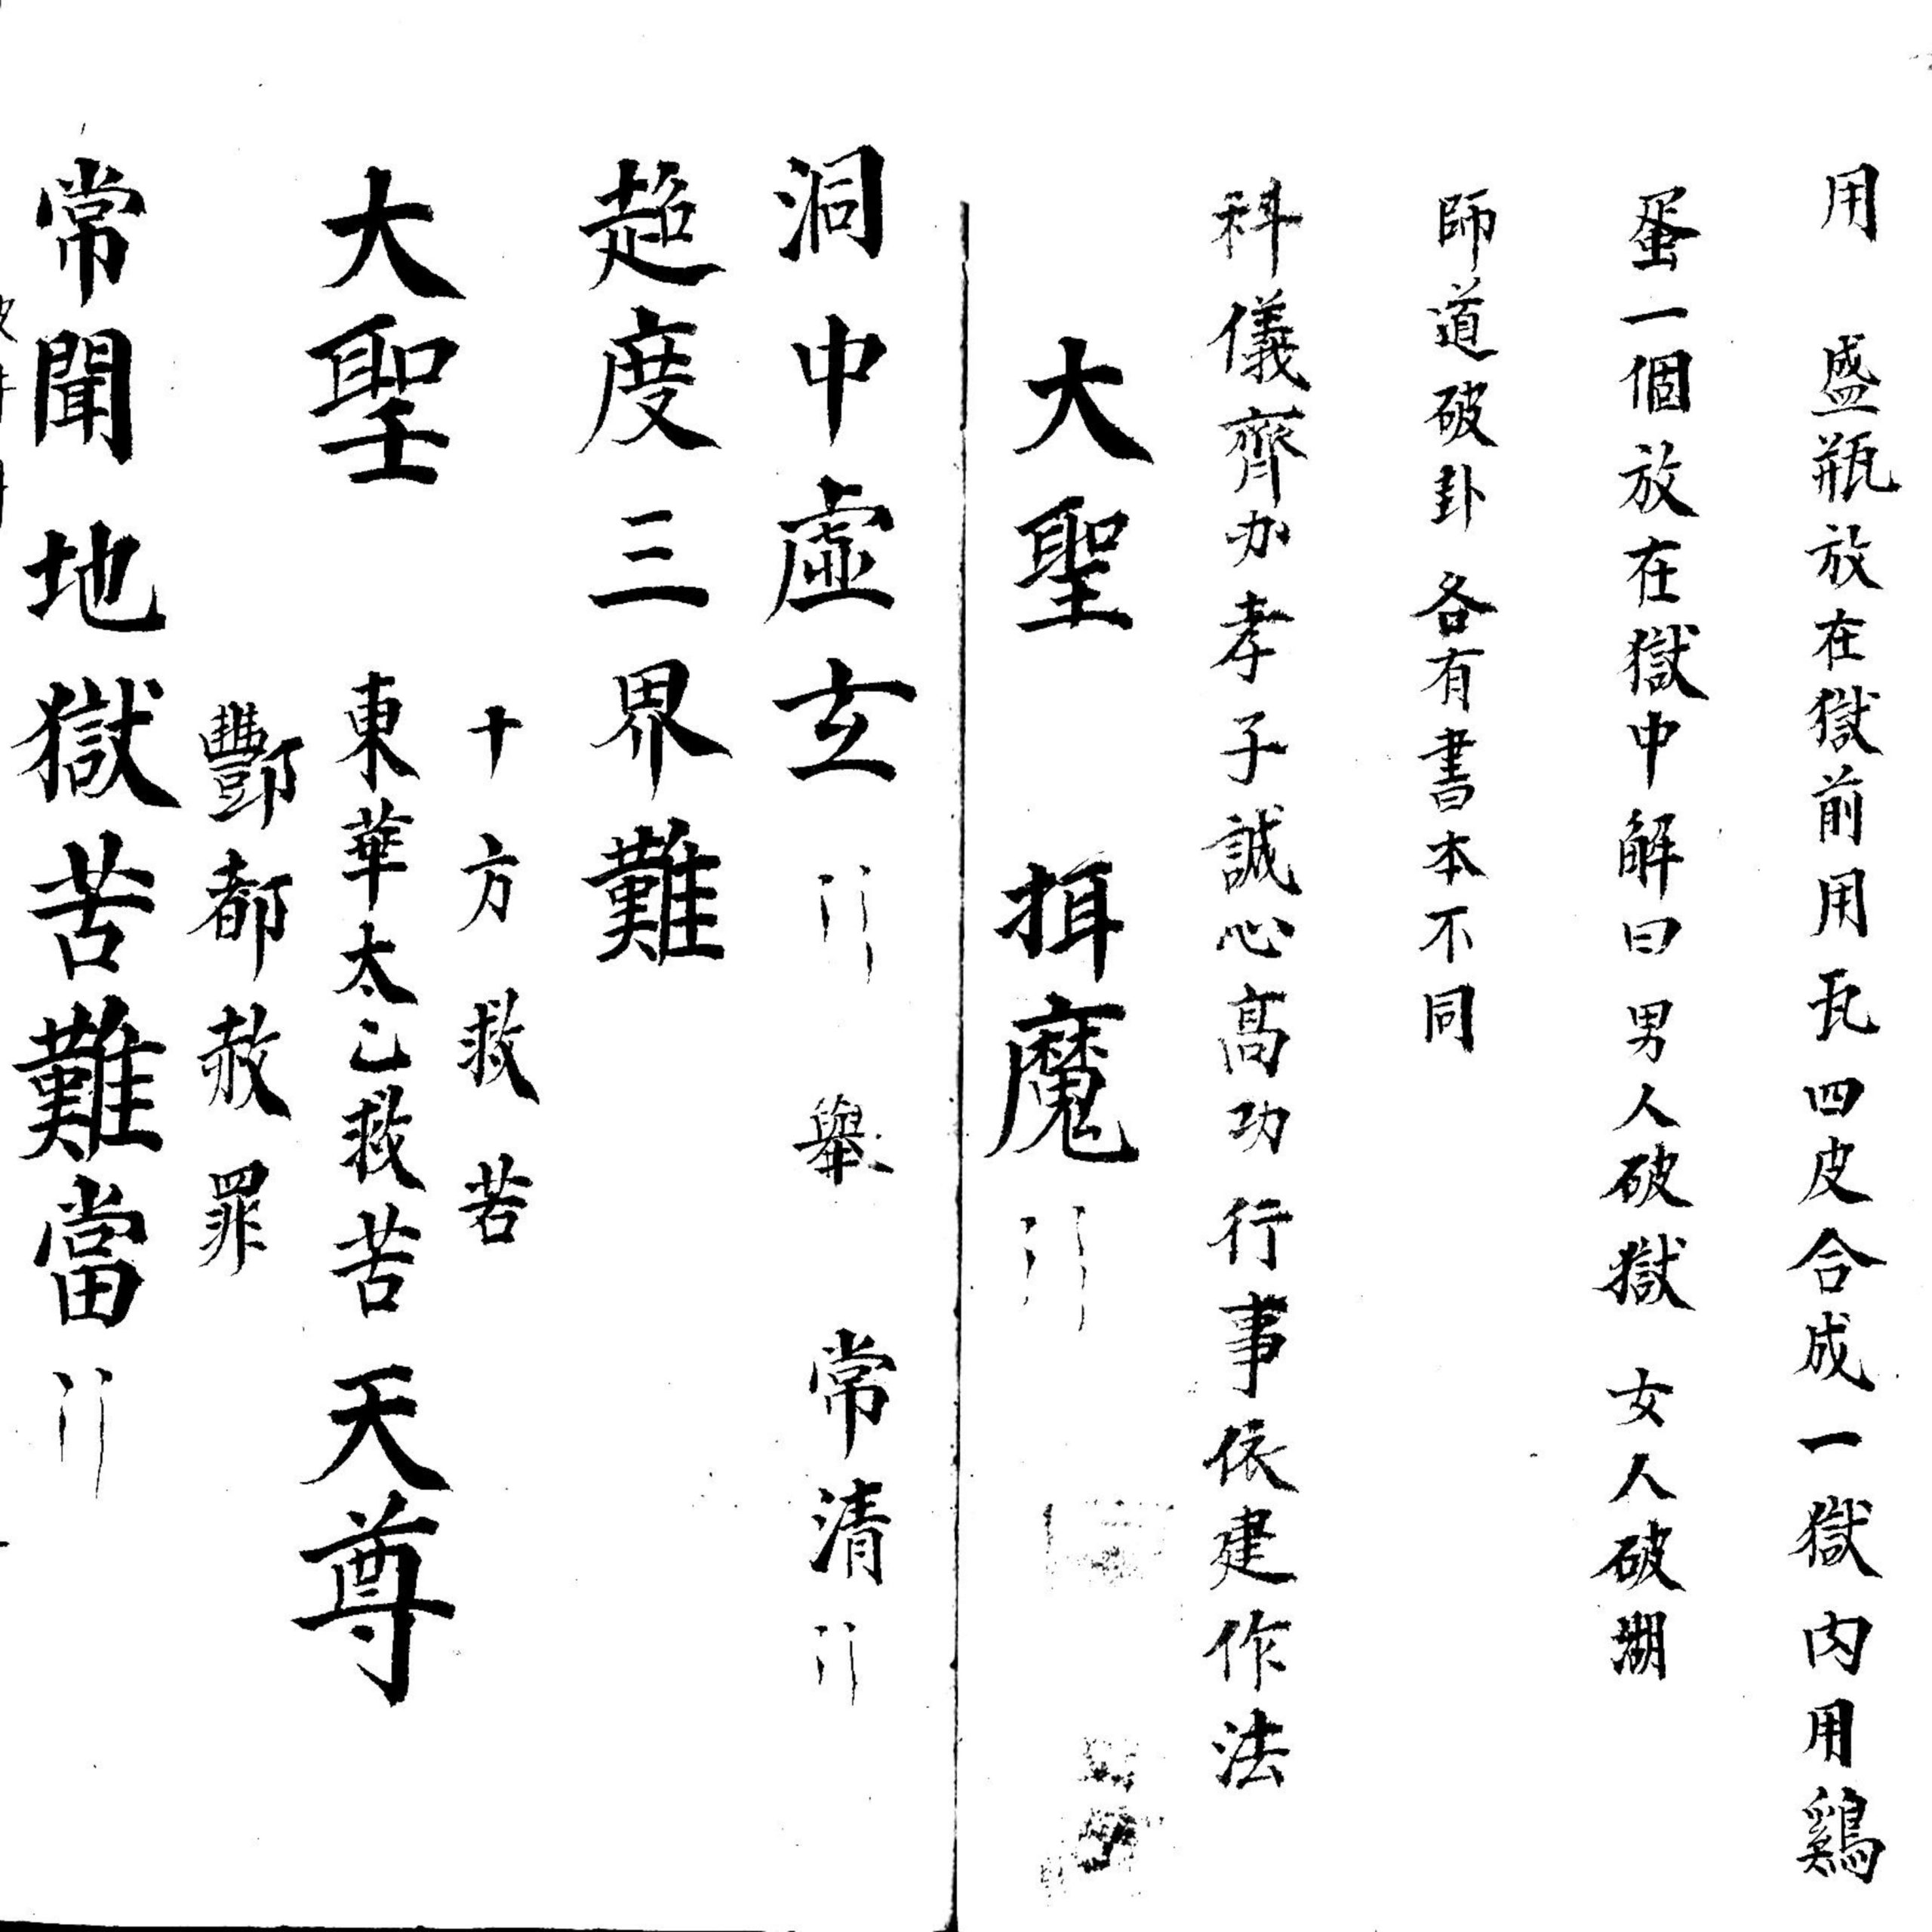 用 盛瓶放在獄前用瓦四皮合成一獄內用鷄
蛋一個放在獄中解曰男人破獄 女人破湖
師道破卦 各有書本不同
科儀齊办孝子誠心高功行事依建作法
大聖 揖魔
洞中虛玄 舉 常清
超度三界難
十方救苦
大聖 東華太乙救苦 天尊
酆都赦罪
常聞地獄苦難當